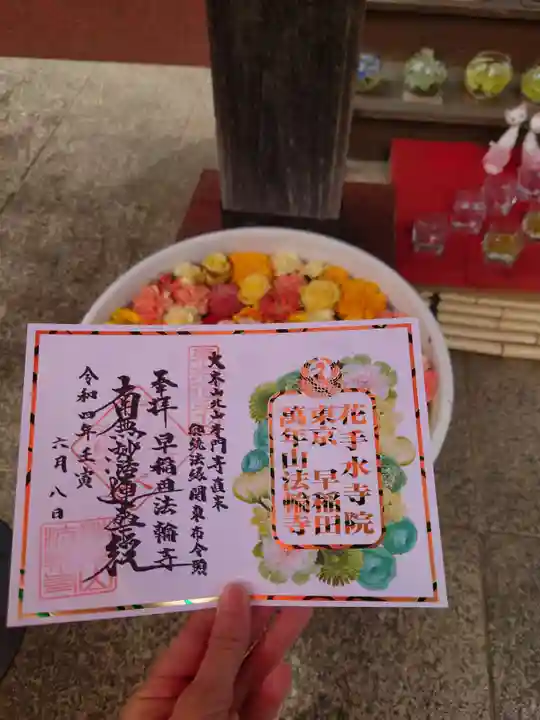 花手水寺院
東京 早稲田
萬年山法輪寺
大本山北山本門寺直末
奉拝 早稲田法輪寺
南無妙法蓮華経
令和四年壬寅
六月八日